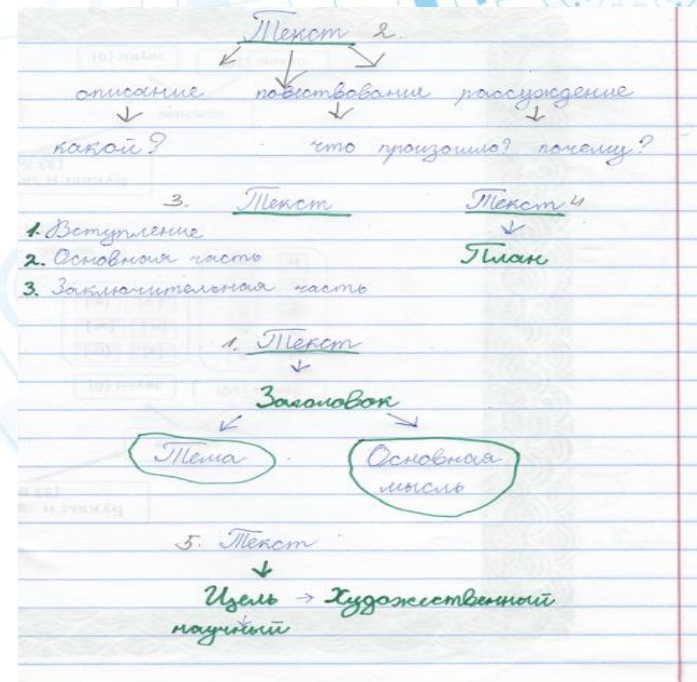 Текст 2.
описание повествование рассуждение
какой? что произошло? почему?
3. Текст Текст 4
1. Вступление
2. Основная часть План
3. Заключительная часть
1. Текст
Заголовок
Тема Основная
мысль
5. Текст
Цель → Художественный
научный